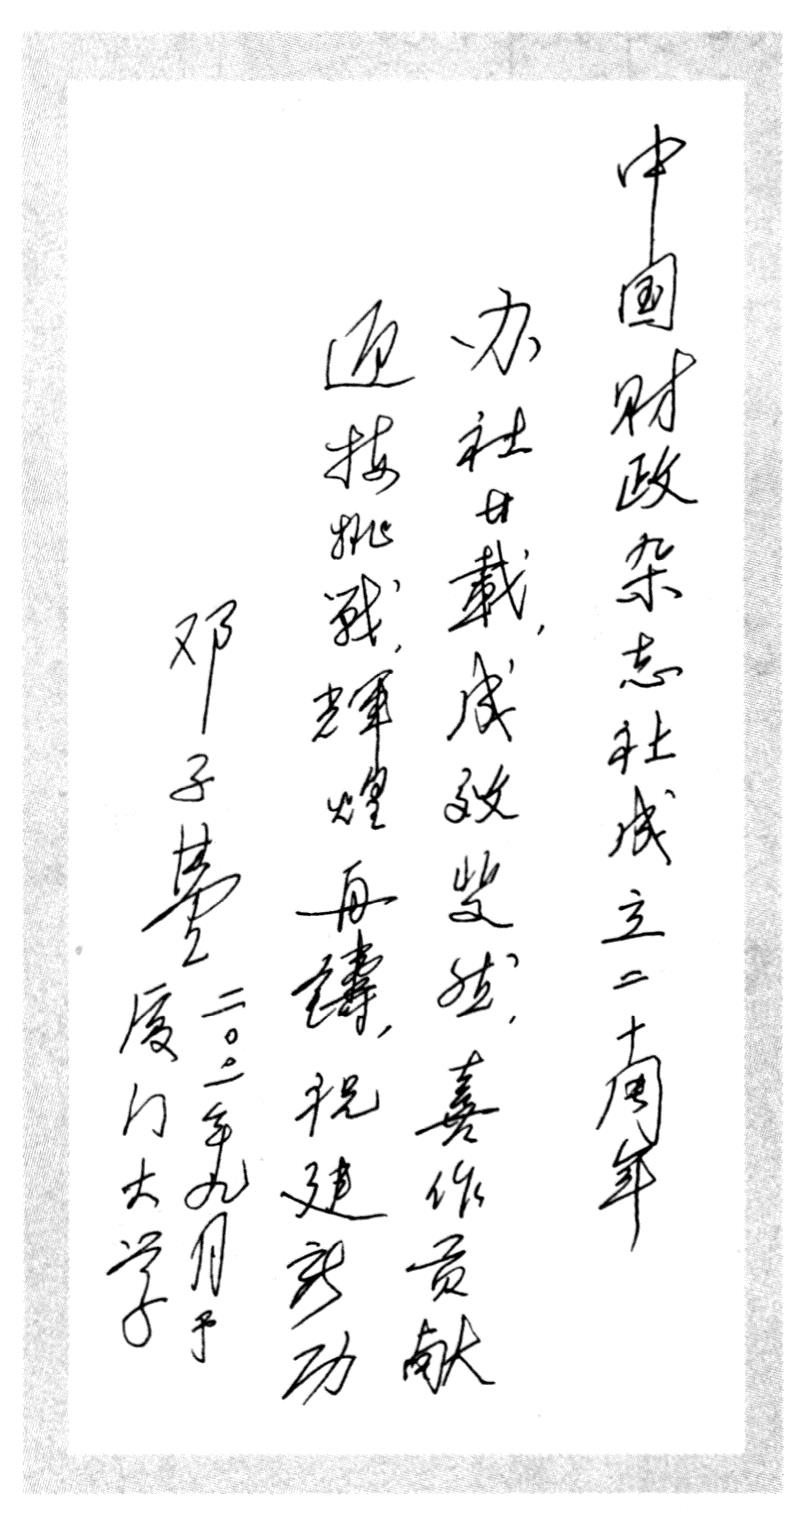 中国财政杂志社成立二十周年
办社廿載,成效斐然,喜作贡献
迎接挑战,輝煌再鑄,祝建新功
邓子基
二〇〇二年九月于
厦门大学